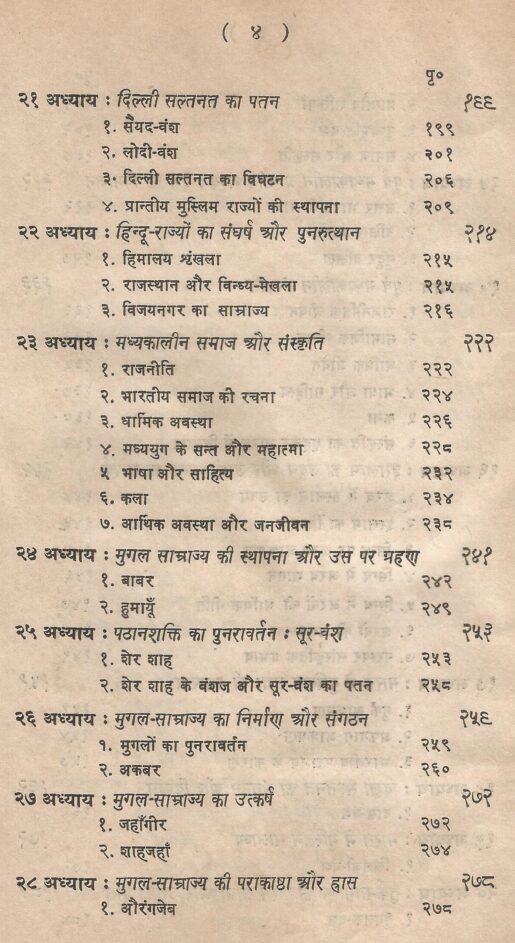 ( ४ )
पृ०
२१ अध्याय : दिल्ली सल्तनत का पतन १९९
१. सैयद-वंश १९९
२. लोदी-वंश २०१
३. दिल्ली सल्तनत का विघटन २०६
४. प्रान्तीय मुस्लिम राज्यों की स्थापना २०९
२२ अध्याय : हिन्दू-राज्यों का संघर्ष और पुनरुत्थान २१४
१. हिमालय श्रंखला २१५
२. राजस्थान और विन्ध्य-मेखला २१५
३. विजयनगर का साम्राज्य २१६
२३ अध्याय : मध्यकालीन समाज और संस्कृति २२२
१. राजनीति २२२
२. भारतीय समाज की रचना २२४
३. धार्मिक अवस्था २२६
४. मध्ययुग के सन्त और महात्मा २२८
५ भाषा और साहित्य २३२
६. कला २३४
७. आर्थिक अवस्था और जनजीवन २३८
२४ अध्याय : मुगल साम्राज्य की स्थापना और उस पर ग्रहण २४१
१. बाबर २४२
२. हुमायूँ २४९
२५ अध्याय : पठानशक्ति का पुनरावर्तन : सूर-वंश २५३
१. शेर शाह २५३
२. शेर शाह के वंशज और सूर-वंश का पतन २५८
२६ अध्याय : मुगल-साम्राज्य का निर्माण और संगठन २५९
१. मुगलों का पुनरावर्तन २५९
२. अकबर २६०
२७ अध्याय : मुगल-साम्राज्य का उत्कर्ष २७२
१. जहाँगीर २७२
२. शाहजहाँ २७४
२८ अध्याय : मुगल-साम्राज्य की पराकाष्ठा और ह्रास २७८
१. औरंगजेब २७८